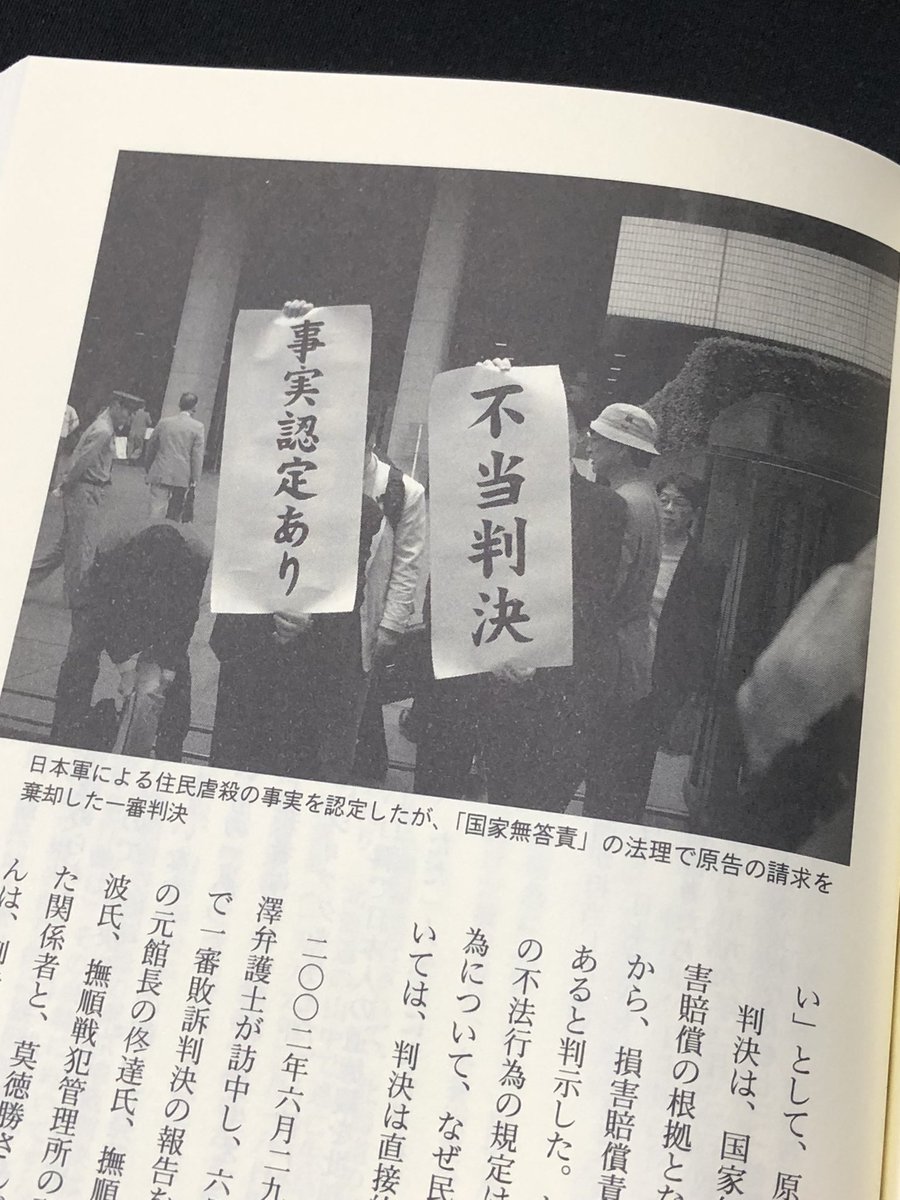 事実認定あり
不当判決
日本軍による住民虐殺の事実を認定したが、「国家無答責」の法理で原告の請求を
棄却した一審判決
い」として、原
判決は、国家
害賠償の根拠とな
から、損害賠償責
あると判示した。
の不法行為の規定は
為について、なぜ民
いては、判決は直接
二〇〇二年六月二九
澤弁護士が訪中し、六
で一審敗訴判決の報告を
の元館長の佟達氏、撫順
波氏、撫順戦犯管理所の
た関係者と、莫徳勝さん
んは、